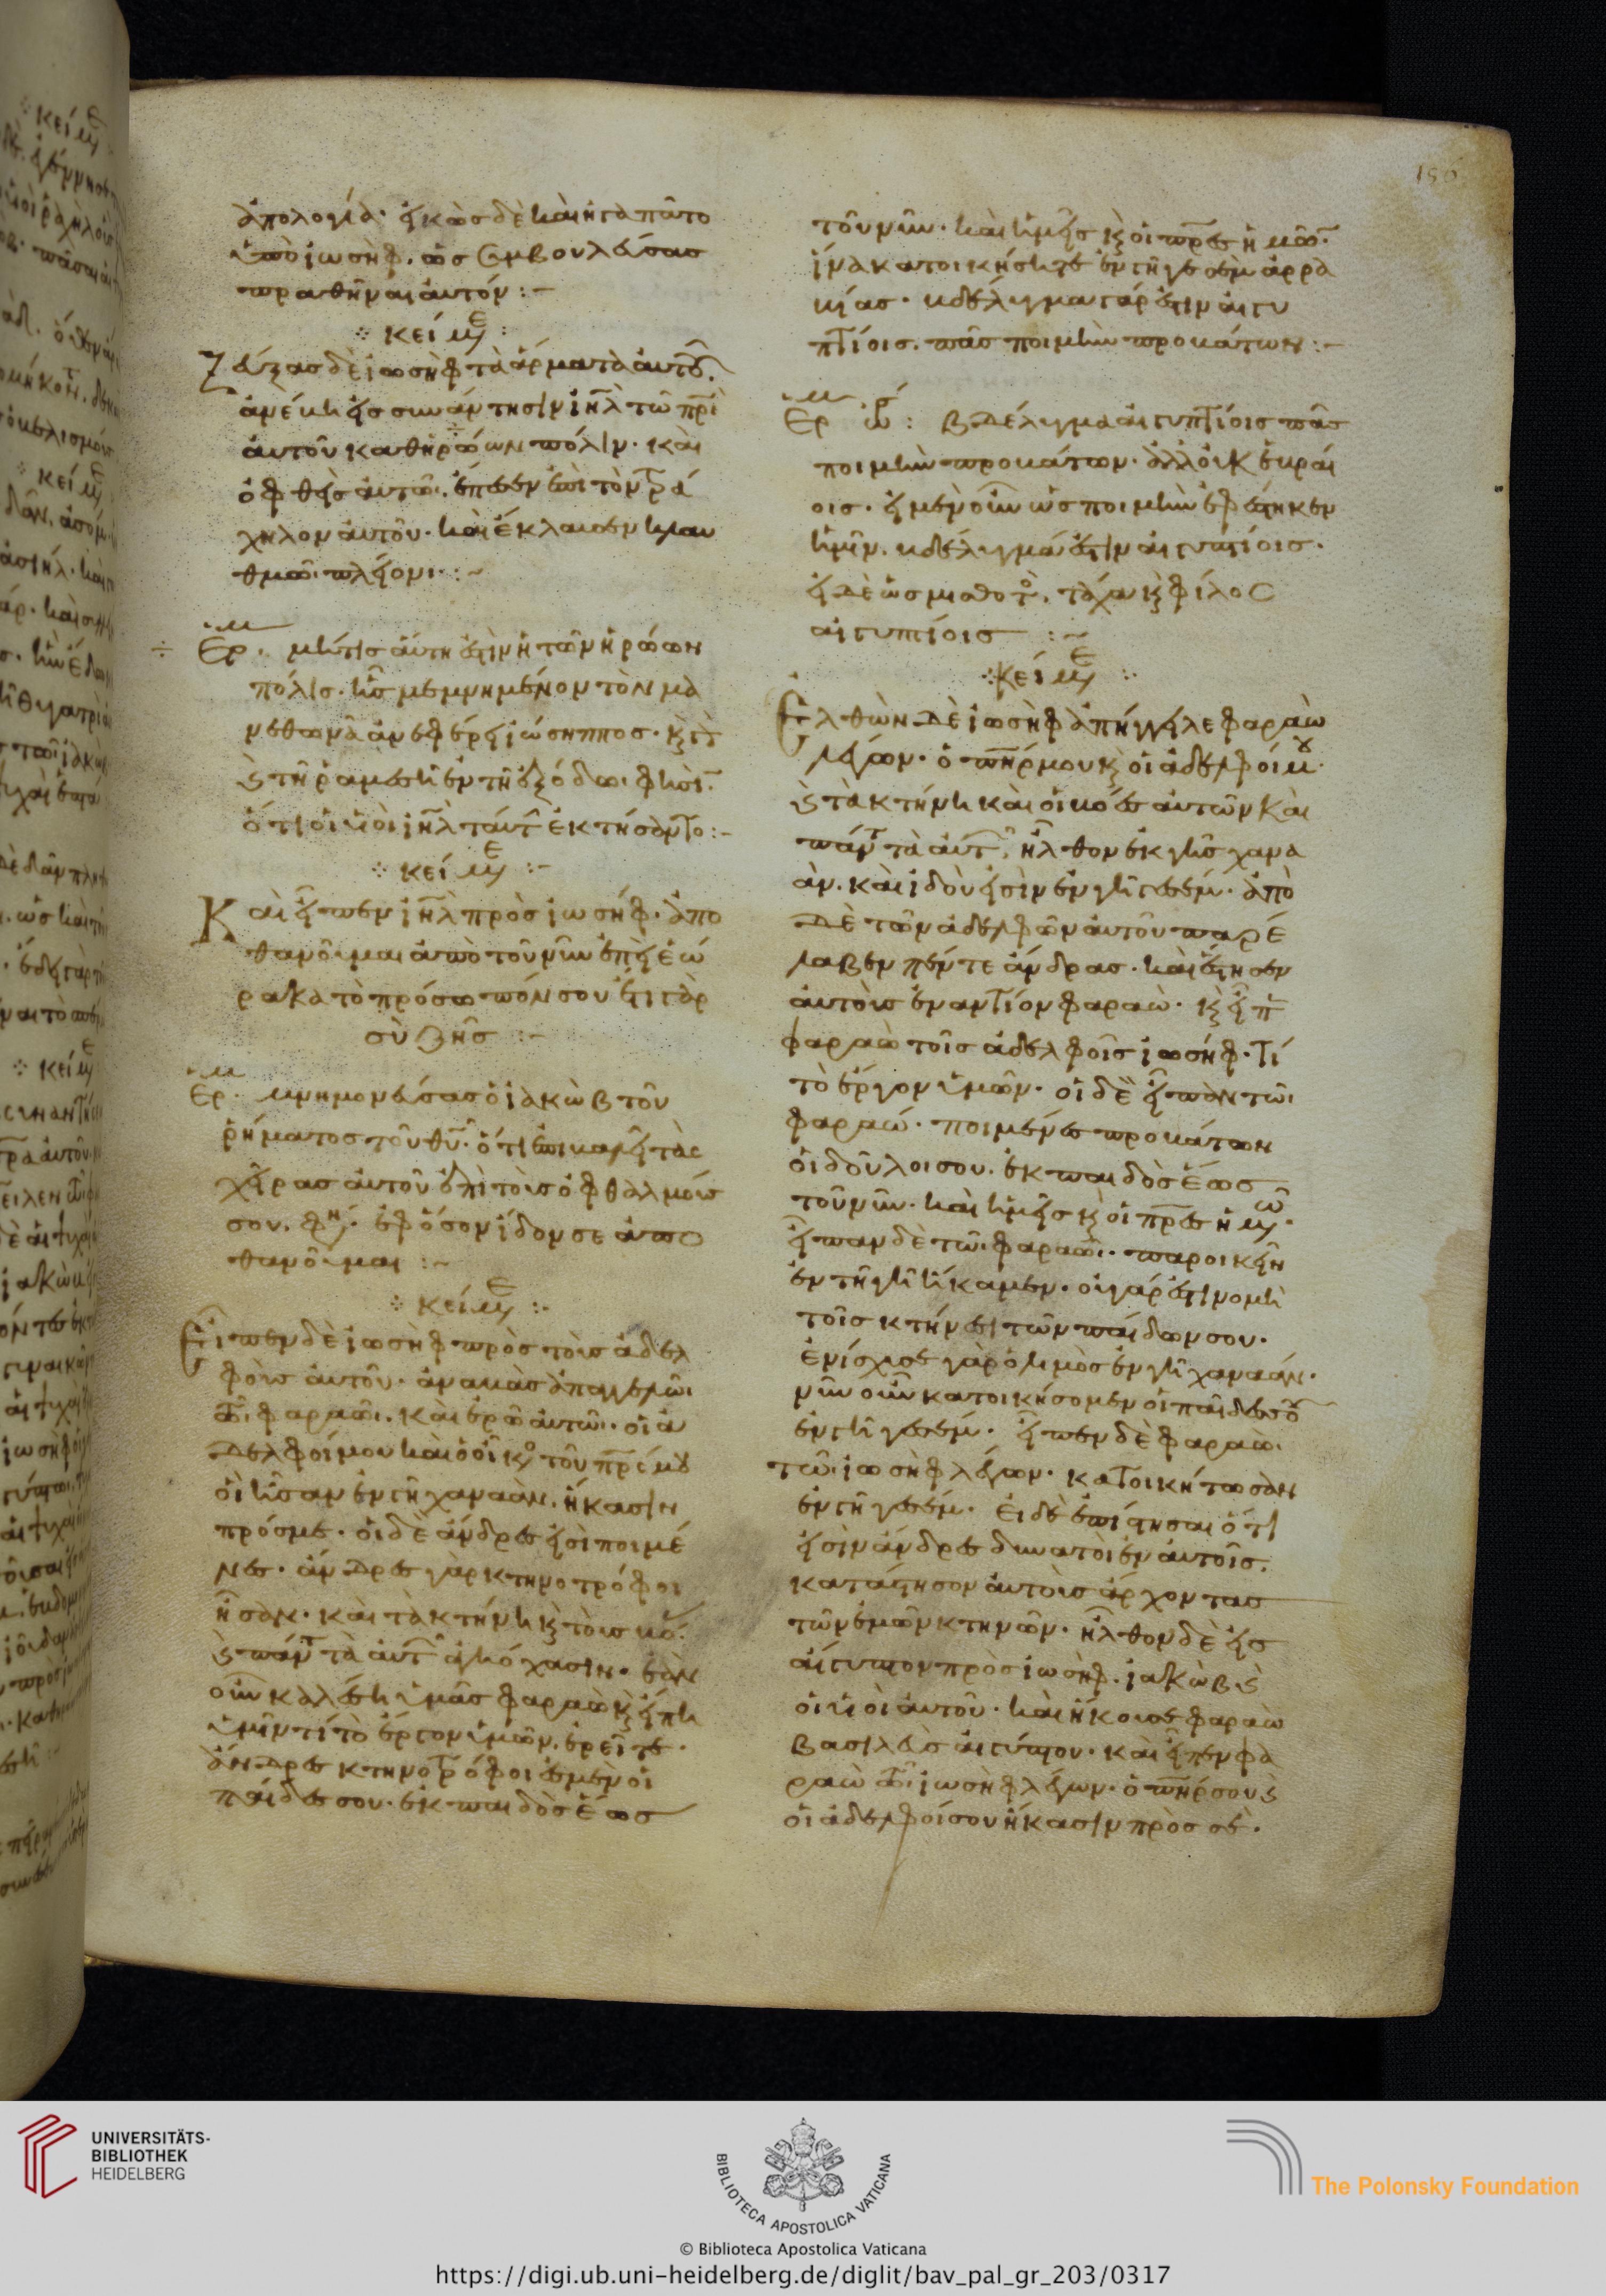 150
ἀπολογία· εἰκὼς δὲ καὶ
ὑπὸ ἰωσὴφ. ὡς συμβουλεύσας
πραθῆναι αὐτόν :-
κείμε
Ζεύξας δὲ ἰωσὴφ τὰ ἅρματα αὐτοῦ.
ἀνέβη εἰς συνάντησιν ἰηλ τῶ πρι
αὐτοῦ καθηρώων πόλιν· καὶ
ὀφθεὶς αὐτῶ. ἐπέσεν ἐπὶ τὸν τρά
χηλον αὐτοῦ· καὶ ἔκλαυσεν κλαυ
θμῶ πλείονι :~
Ἑρμ. μήτις αὕτη ἐστὶν ἡ τῶν ἡρώων
πόλις. ἧς μεμνημένον τὸν μα
νεθωνα ἀνεφέρει ἰώσηππος·
τῆ ραμεσῆ ἐν τῆ ἐξόδω. φησὶ.
ὅτι οἱ υἱοὶ ἰηλ ταύτ ἐκτήσαντο :-
κείμε :-
Καὶ εἶπεν ἰηλ πρὸς ἰωσήφ. ἀπο
θανοῦμαι ἀπὸ τοῦ νῦν ἐπεὶ ἑώ
ρακα τὸ πρόσωπόν σου ἔτι γὰρ
σὺ ζῆς :-
Ἑρμ. μνημονεύσας ὁ ἰακὼβ τοῦ
ῥήματος τοῦ θυ. ὅτι ἐπιβαλεῖ τὰς
χεῖρας αὐτοῦ ἐπὶ τοὺς ὀφθαλμούς
σου. φη. ἐφόσον ἴδον σε ἀπο
θανοῦμαι :~
κείμε :-
Εἶπεν δὲ ἰωσὴφ πρὸς τοὺς ἀδελ
φοὺς αὐτοῦ. ἀναβὰς ἀπαγγελῶ
τῶ φαραῶ. καὶ ἐρῶ αὐτῶ. οἱ ἀ
δελφοί μου καὶ ὁ οἶκο τοῦ πρς μου
οἳ ἦσαν ἐν γῆ χαναάν. ἥκασιν
πρός με· οἱ δὲ ἄνδρες εἰσὶ ποιμέ
νες· ἄνδρες γὰρ κτηνοτρόφοι
ἦσαν. καὶ τὰ κτήνη κ τοὺς βό.
κ πάντ τὰ αὐτ ἀγιόχασιν. ἐὰν
οὖν καλέση ὑμᾶς φαραὼ κ εἴπη
ὑμῖν τί τὸ ἔργον ὑμῶν. ἐρεῖτε·
ἄνδρες κτηνοτρόφοι ἐσμὲν οἱ
παῖδες σου. ἐκ παιδὸς ἕως
τοῦ νῦν. καὶ ἡμεῖς κ οἱ πρες ἡμῶ.
ἵνα κατοικήσητε ἐν γῆ γεσὲμ ἀρρα
βίας· βδέλυγμα γάρ ἐστιν αἰγυ
πτίοις. πᾶς ποιμὴν προβάτων :-
Ἑρμ ὠρ : βδέλυγμα αἰγυπτίοις πᾶς
ποιμὴν προβάτων. ἀλλ οὐκ ἑβραί
οις. εἰ μὲν οὖν ὡς ποιμὴν ἐφέστηκεν
ἡμῖν. βδέλυγμά ἐστιν αἰγυπτίοις.
εἰ δὲ ὡς μισθοτ. τάχα κ φίλος
αἰγυπτίοις :~
κείμε :
Ἐλθὼν δὲ ἰωσὴφ ἀπήγγειλε φαραὼ
λέγων· ὁ πηρ μου κ οἱ ἀδελφοί μου.
κ τὰ κτήνη καὶ οἱ βόες αὐτῶν καὶ
πάντ τὰ αὐτ, ἦλθον ἐκ γῆς χανα
άν. καὶ ἰδοὺ εἰσὶν ἐν γῆ γεσέμ· ἀπὸ
δὲ τῶν ἀδελφῶν αὐτοῦ παρέ
λαβεν πέντε ἄνδρας. καὶ ἔστησεν
αὐτοὺς ἐναντίον φαραὼ. κ εἶπ
φαραὼ τοῖς ἀδελφοῖς ἰωσήφ. τί
τὸ ἔργον ὑμῶν. οἱ δὲ εἶπαν τῶ
φαραώ. ποιμένες προβάτων
οἱ δοῦλοι σου. ἐκ παιδὸς ἕως
τοῦ νῦν. καὶ ἡμεῖς κ οἱ πρες ἡμῶ.
εἶπαν δὲ τῶ φαραῶ. παροικεῖν
ἐν τῆ γῆ ἥκαμεν. οὐ γάρ ἐστι νομὴ
τοῖς κτήνεσι τῶν παίδων σου.
ἐνίσχυσε γὰρ ὁ λιμὸς ἐν γῆ χαναάν.
νῦν οὖν κατοικήσομεν οἱ παῖδες σου
ἐν γῆ γεσέμ. εἶπεν δὲ φαραὼ.
τῶ ἰωσὴφ λέγων. κατοικήτωσαν
ἐν γῆ γεσέμ. εἰ δὲ ἐπίστησαι ὅτι
εἰσὶν ἄνδρες δυνατοὶ ἐν αὐτοῖς.
κατάστησον αὐτοὺς ἄρχοντας
τῶν ἐμῶν κτηνῶν. ἦλθον δὲ εἰς
αἴγυπτον πρὸς ἰωσὴφ. ἰακὼβ κ
οἱ υἱοὶ αὐτοῦ. καὶ ἤκουσε φαραὼ
βασιλεὺς αἰγύπτου. καὶ εἶπεν φα
ραὼ τῶ ἰωσὴφ λέγων. ὁ πηρ σου κ
οἱ ἀδελφοί σου ἥκασιν πρὸς σέ.
UNIVERSITÄTS-
BIBLIOTHEK
HEIDELBERG
BIBLIOTECA APOSTOLICA VATICANA
The Polonsky Foundation
© Biblioteca Apostolica Vaticana
https://digi.ub.uni-heidelberg.de/diglit/bav_pal_gr_203/0317